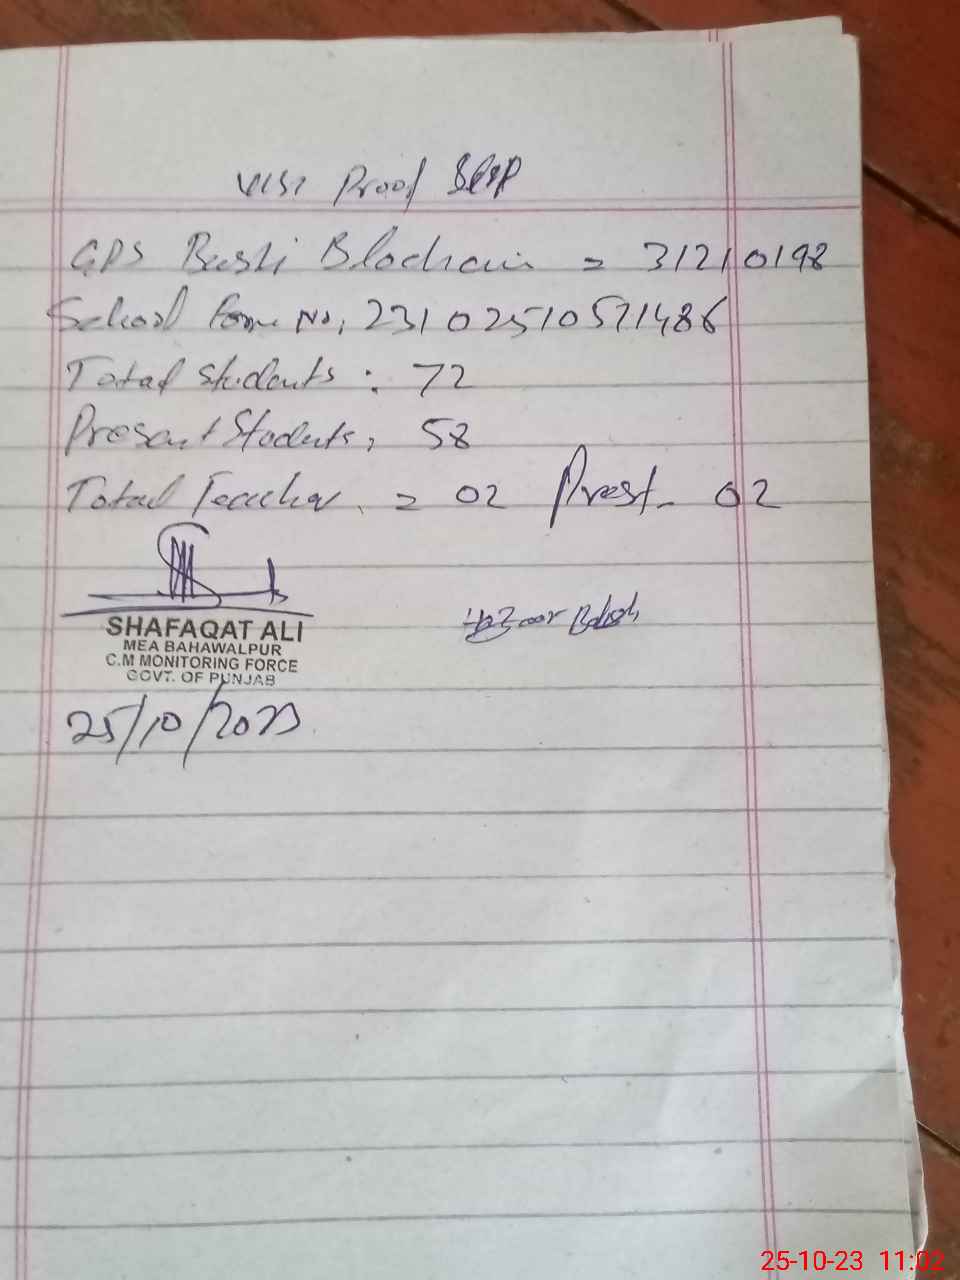 Visit Proof Slip
GPS Basti Blochain = 31210198
School Form No, 23102510571486
Total students : 72
Present Students, 58
Total Teacher = 02 Prest. 02
SHAFAQAT ALI
MEA BAHAWALPUR
C.M MONITORING FORCE
GOVT. OF PUNJAB
25/10/2023
25-10-23 11:02